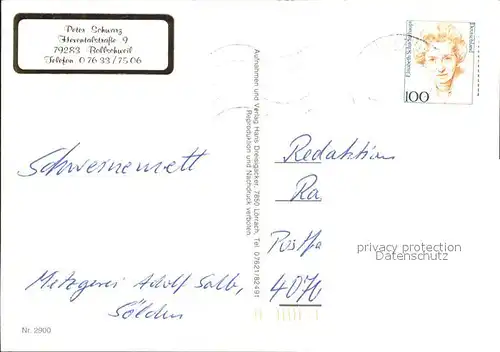 Peter Schwarz
79283 Bollschweil
Telefon 0 76 33 / 75 06
Deutschland
100
Schweinemett
Metzgerei Adolf Salb,
Sölden
Nr. 2900
Aufnahmen und Verlag Hans Dressgacker, 7850 Lörrach, Tel. 07621/82491
Reproduktion und Nachdruck verboten.
Redaktion
Ra
Postfa
4070
privacy protection
Datenschutz